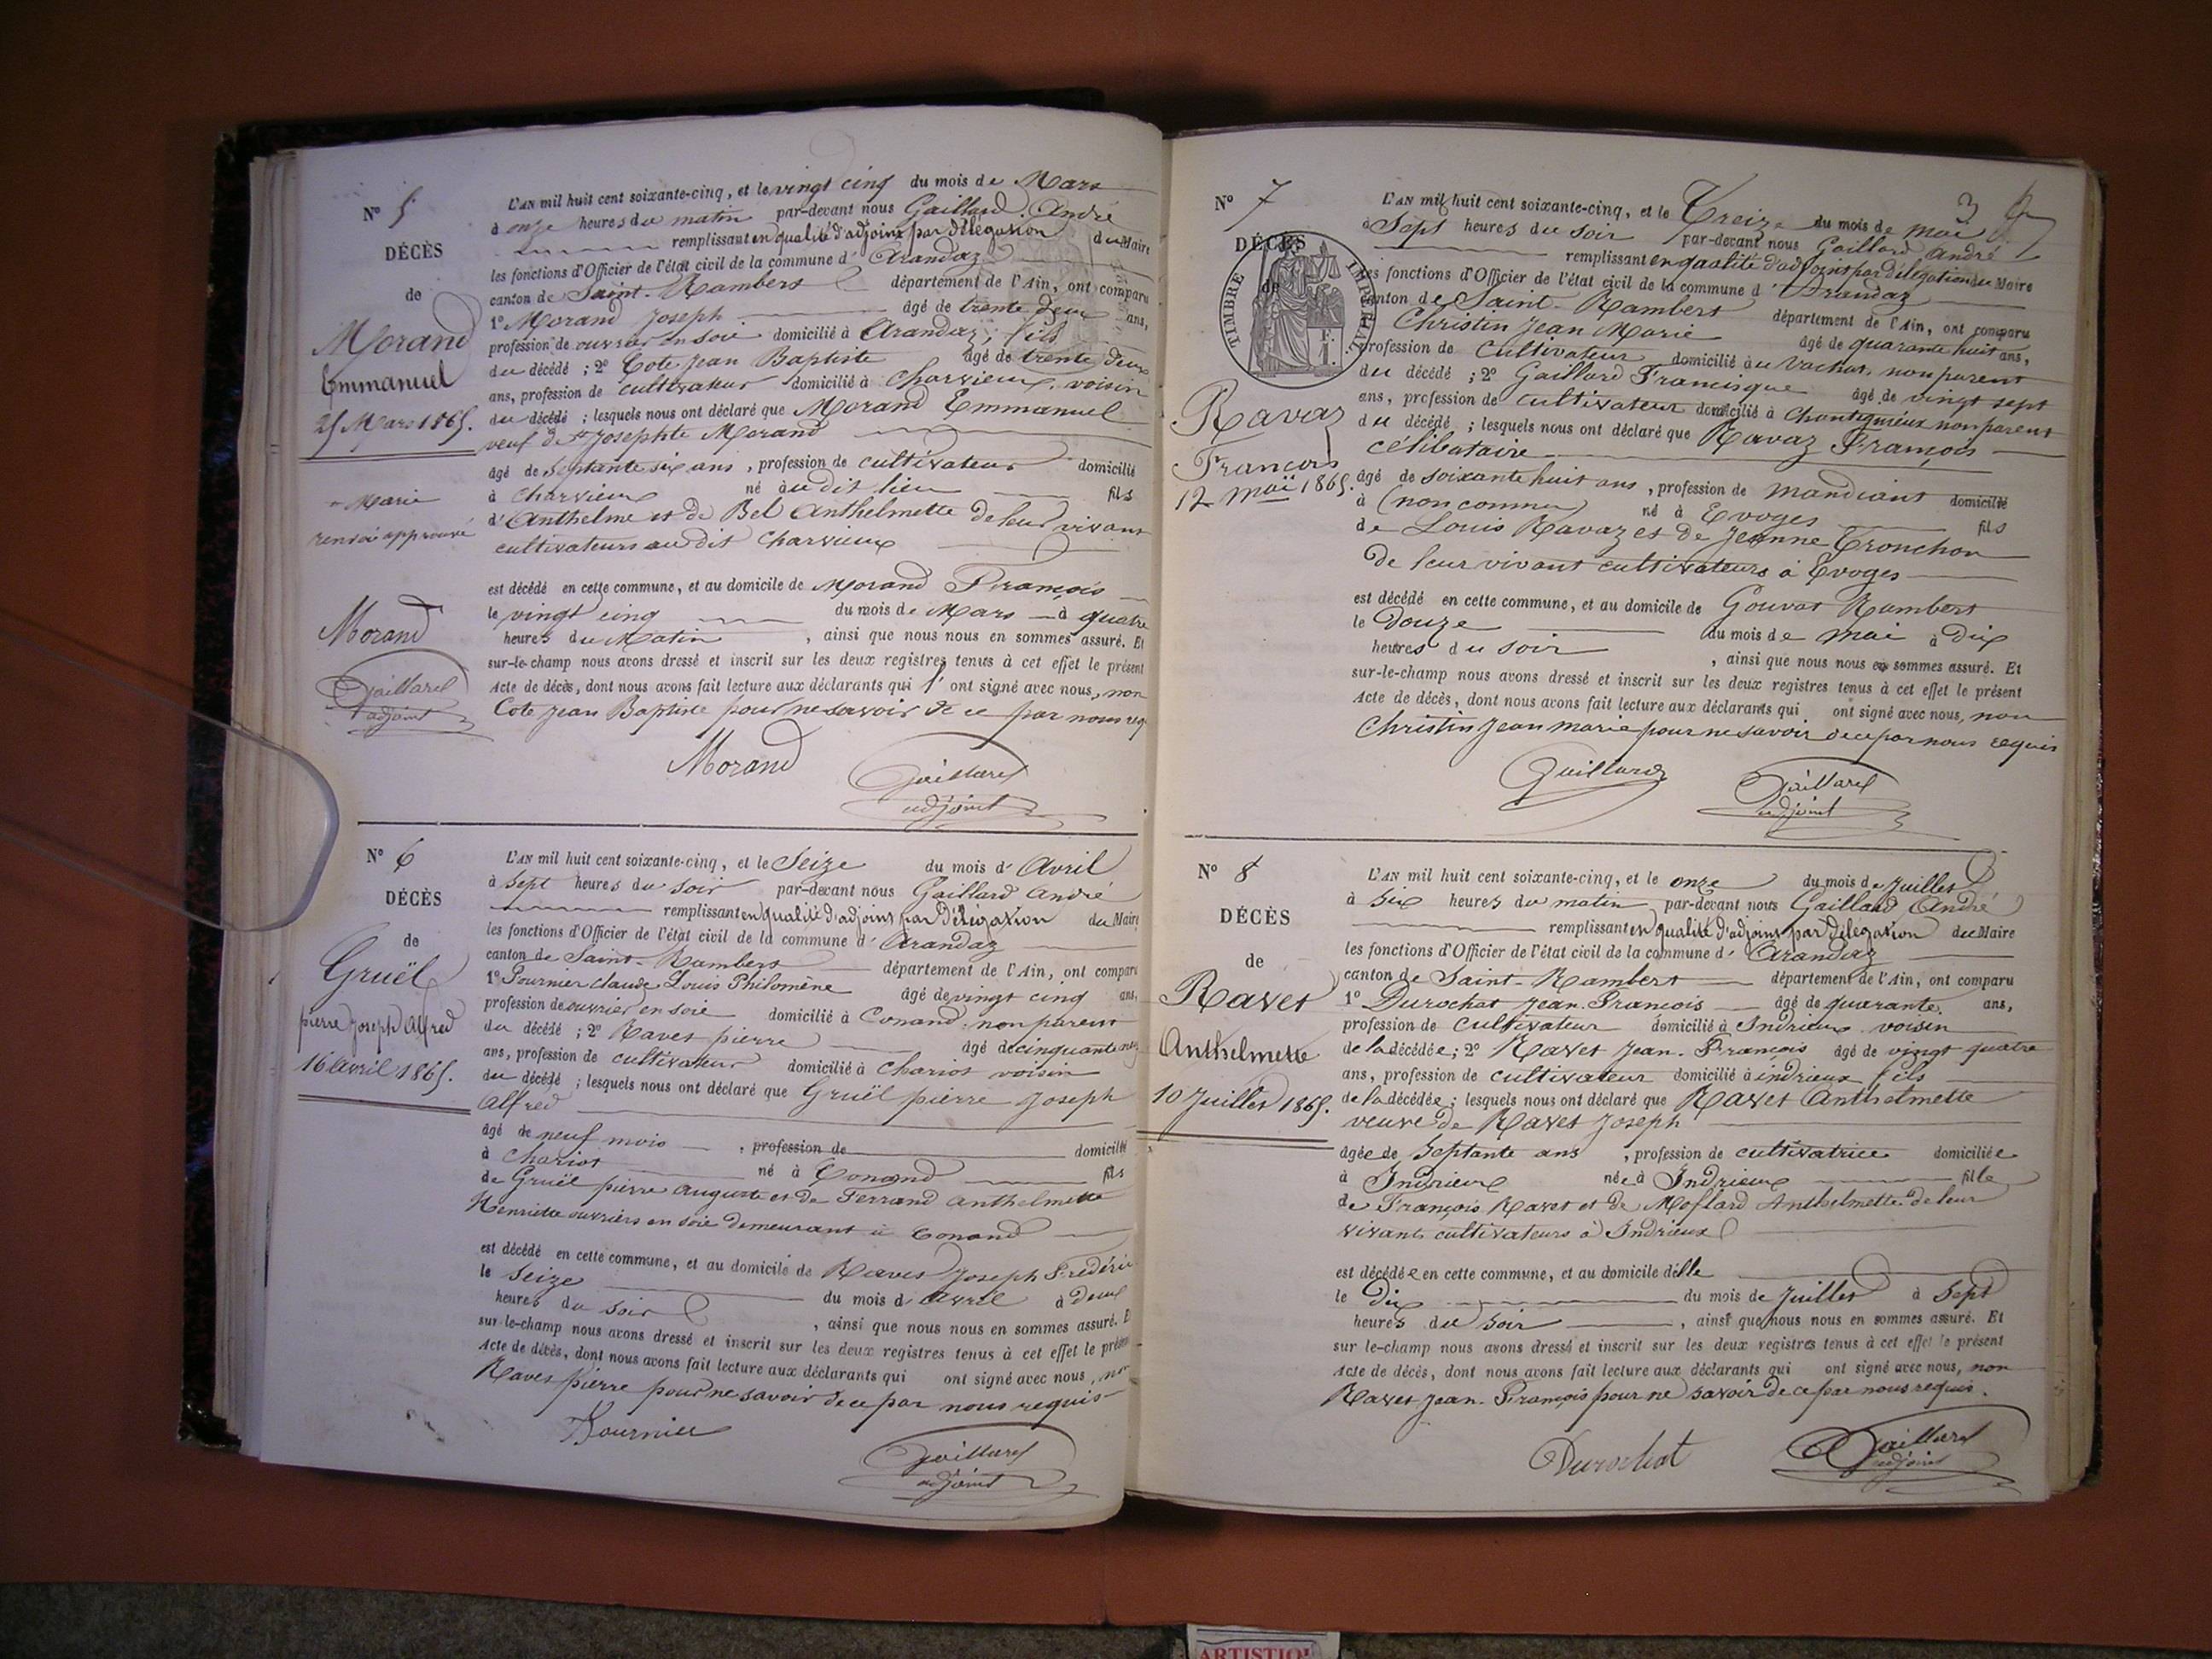 N° 5
DÉCÈS
de
Morand
Emmanuel
25 Mars 1865.
Marie
renvoi approuvé
Morand
Gaillard
adjoint
L'AN mil huit cent soixante-cinq, et le vingt cinq du mois de Mars
à onze heures du matin par-devant nous Gaillard André
remplissant en qualité d'adjoint par délégation du Maire
les fonctions d'Officier de l'état civil de la commune d' Arandaz
canton de Saint-Rambert département de l'Ain, ont comparu
1° Morand Joseph âgé de trente deux ans,
profession de ouvrier en soie domicilié à Arandaz, fils
du décédé ; 2° Cote Jean Baptiste âgé de trente deux
ans, profession de cultivateur domicilié à Charvieux, voisin
du décédé ; lesquels nous ont déclaré que Morand Emmanuel
veuf de Josephte Morand
âgé de septante six ans, profession de cultivateur domicilié
à Charvieux né au dit lieu fils
d'Anthelme et de Bel Anthelmette de leur vivant
cultivateurs au dit Charvieux
est décédé en cette commune, et au domicile de Morand François
le vingt cinq du mois de Mars à quatre
heures du Matin, ainsi que nous nous en sommes assuré. Et
sur-le-champ nous avons dressé et inscrit sur les deux registres tenus à cet effet le présent
Acte de décès, dont nous avons fait lecture aux déclarants qui l' ont signé avec nous, non
Cote Jean Baptiste pour ne savoir de ce par nous req
Morand
Gaillard
adjoint
N° 6
DÉCÈS
de
Gruël
pierre Joseph Alfred
16 avril 1865.
L'AN mil huit cent soixante-cinq, et le Seize du mois d' Avril
à Sept heures du soir par-devant nous Gaillard André
remplissant en qualité d'adjoint par délégation du Maire
les fonctions d'Officier de l'état civil de la commune d' Arandaz
canton de Saint-Rambert département de l'Ain, ont comparu
1° Fournier Claude Louis Philomène âgé de vingt cinq ans,
profession de ouvrier en soie domicilié à Conand, non parent
du décédé ; 2° Ravet pierre âgé de cinquante
ans, profession de cultivateur domicilié à Chariot voisin
du décédé ; lesquels nous ont déclaré que Gruël pierre Joseph
Alfred
âgé de neuf mois, profession de domicilié
à Chariot né à Conand fils
de Gruël pierre auguste et de Ferrand Anthelmette
Henriette ouvriers en soie demeurant à Conand
est décédé en cette commune, et au domicile de Ravet Joseph Frédéric
le Seize du mois d' Avril à deux
heures du soir, ainsi que nous nous en sommes assuré. Et
sur-le-champ nous avons dressé et inscrit sur les deux registres tenus à cet effet le présent
Acte de décès, dont nous avons fait lecture aux déclarants qui ont signé avec nous, non
Ravet pierre pour ne savoir de ce par nous requis
Fournier
Gaillard
adjoint
3
N° 7
DÉCÈS
de
TIMBRE IMPÉRIAL
Ravaz
François
12 mai 1865.
L'AN mil huit cent soixante-cinq, et le Treize du mois de mai
à Sept heures du soir par-devant nous Gaillard André
remplissant en qualité d'adjoint par délégation du Maire
les fonctions d'Officier de l'état civil de la commune d' Arandaz
canton de Saint-Rambert département de l'Ain, ont comparu
Christin Jean Marie âgé de quarante huit ans,
profession de Cultivateur domicilié au Vachat, non parent
du décédé ; 2° Gaillard Francisque âgé de vingt sept
ans, profession de cultivateur domicilié à Chantignieux non parent
du décédé ; lesquels nous ont déclaré que Ravaz François
célibataire
âgé de soixante huit ans, profession de mandiant domicilié
à (non connu) né à Evoges fils
de Louis Ravaz et de Jeanne Tronchon
de leur vivant cultivateurs à Evoges
est décédé en cette commune, et au domicile de Gouvat Rambert
le Douze du mois de mai à dix
heures du soir, ainsi que nous nous en sommes assuré. Et
sur-le-champ nous avons dressé et inscrit sur les deux registres tenus à cet effet le présent
Acte de décès, dont nous avons fait lecture aux déclarants qui ont signé avec nous, non
Christin Jean marie pour ne savoir de ce par nous requis
Gaillard
Gaillard
adjoint
N° 8
DÉCÈS
de
Ravet
Anthelmette
10 Juillet 1865.
L'AN mil huit cent soixante-cinq, et le onze du mois de Juillet
à six heures du matin par-devant nous Gaillard André
remplissant en qualité d'adjoint par délégation du Maire
les fonctions d'Officier de l'état civil de la commune d' Arandaz
canton de Saint-Rambert département de l'Ain, ont comparu
1° Durochat Jean-François âgé de quarante ans,
profession de cultivateur domicilié à Indrieux voisin
de la décédée ; 2° Ravet Jean-François âgé de vingt quatre
ans, profession de cultivateur domicilié à indrieux fils
de la décédée ; lesquels nous ont déclaré que Ravet Anthelmette
veuve de Ravet Joseph
âgée de Septante ans, profession de cultivatrice domiciliée
à Indrieux née à Indrieux fille
de François Ravet et de Mollard Anthelmette de leur
vivant cultivateurs à Indrieux
est décédée en cette commune, et au domicile d'elle
le Dix du mois de Juillet à Sept
heures du soir, ainsi que nous nous en sommes assuré. Et
sur le-champ nous avons dressé et inscrit sur les deux registres tenus à cet effet le présent
Acte de décès, dont nous avons fait lecture aux déclarants qui ont signé avec nous, non
Ravet Jean-François pour ne savoir de ce par nous requis.
Durochat
Gaillard
adjoint
ARTISTIQ